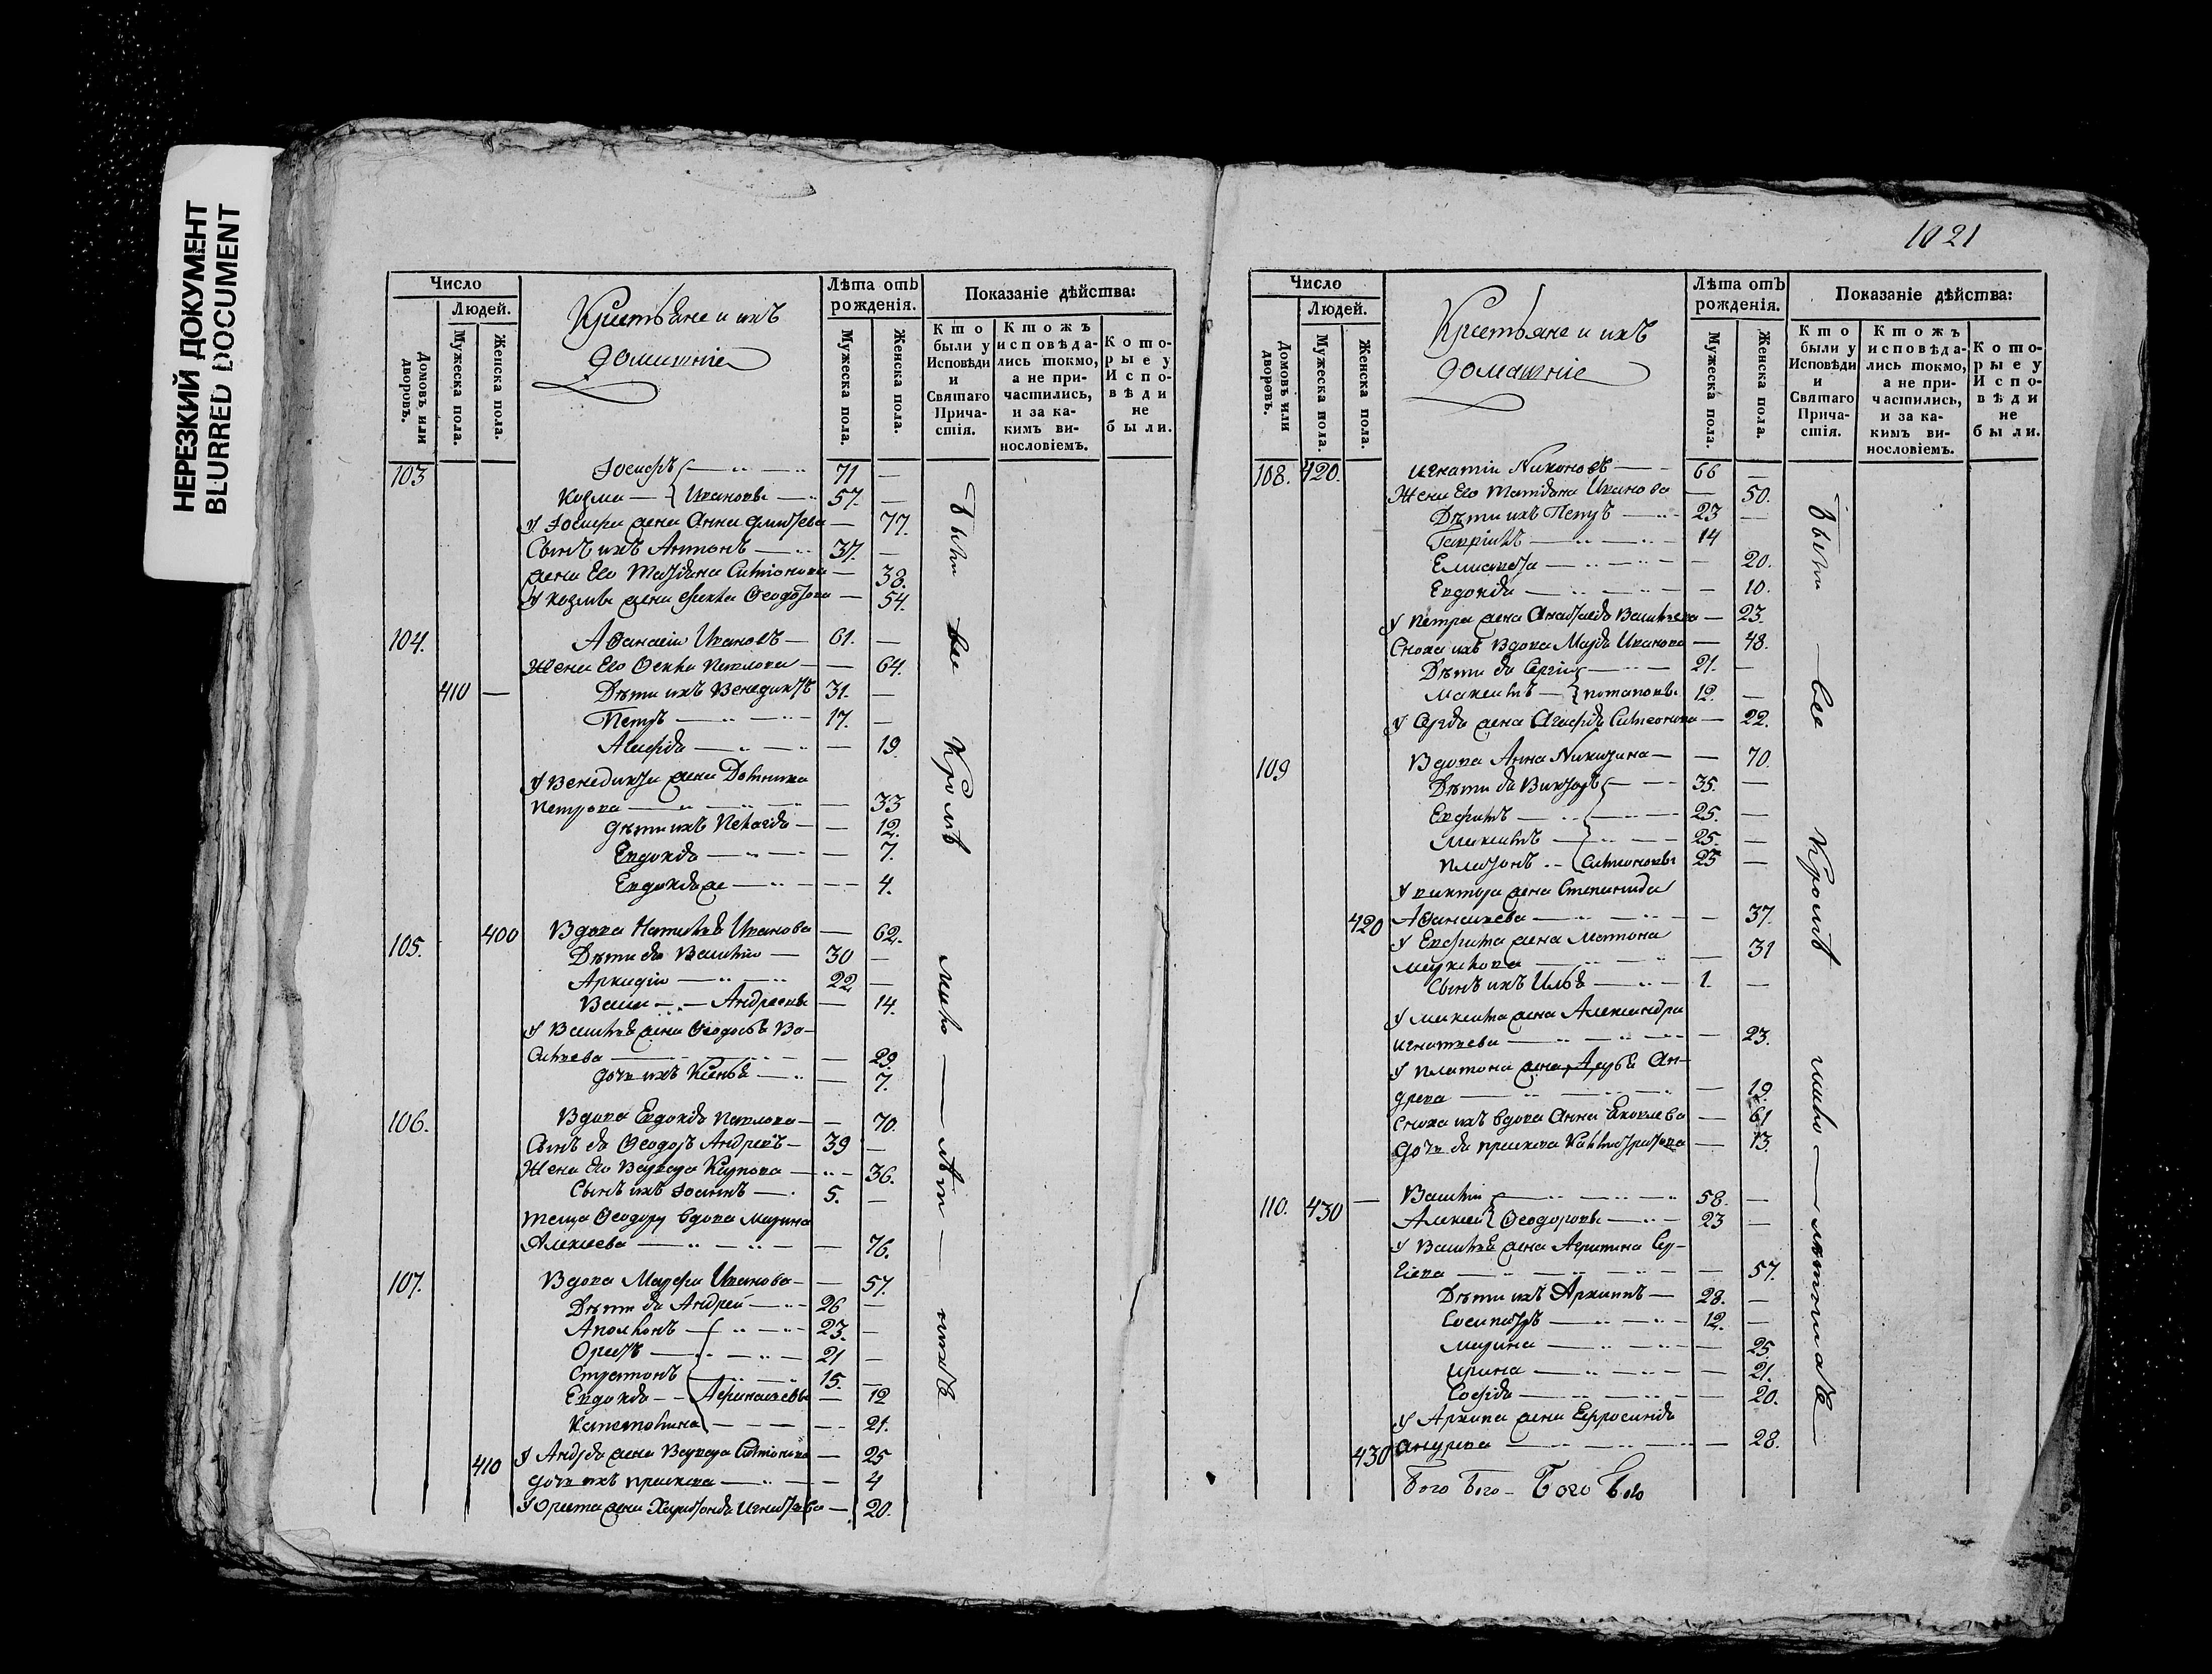 НЕРЕЗКИЙ ДОКУМЕНТ
BLURRED DOCUMENT
Число
Людей.
Домовъ или дворовъ.
Мужеска пола.
Женска пола.
Крестьяне и ихъ
домашніе
Лѣта отъ рожденія.
Мужеска пола.
Женска пола.
Показаніе дѣйства:
Кто были у Исповѣди и Святаго Причастія.
Ктожъ исповѣдались токмо, а не причастились, и за какимъ винословіемъ.
Которые у Исповѣди не были.
103 Іосифъ 71 —
Козма — Ивановы — 57. —
У Іосифа жена Анна — 77.
Сынъ ихъ Антонъ — 37. —
жена Его Матрона Симіонова — 38.
У Козмы жена Ѳекла Ѳеодорова — 54.
104. Аѳанасіи Ивановъ — 61. —
Жена Его Ѳекла Павлова — — 64.
410 — Дѣти ихъ Венедиктъ 31. —
Петръ — 17. —
Агафія — — 19
У Венедикта жена Домника
Петрова — — 33
Дѣти ихъ Пелагія — — 12.
Евдокія — — 7.
Евдокія же — — 4.
105. 400 Вдова Наталья Иванова — 62.
Дѣти ея Василіи — 30 —
Аркадіи — 22 —
Васса — Андреевы — 14.
У Василья жена Ѳеодосья Ва-
сильева — — 29.
Дочь ихъ Ксенья — — 7.
106. Вдова Евдокія Павлова — — 70.
Сынъ ея Ѳеодоръ Андреевъ — 39 —
Жена Его Варвара Карпова — 36.
Сынъ ихъ Іоаннъ — 5. —
теща Ѳеодору вдова Марина
Алексеева — — 76.
107. Вдова Марфа Иванова — — 57.
Дѣти ея Андрей — 26 —
Аполлонъ — 23. —
Орестъ — 21 —
Стратонъ — 15. —
Евдокія — Афанасьевы — 12
Капетолина — — 21.
410 У Андрея жена Варвара Симіонова — 25
Дочь ихъ Прасковья — — 4
У Ореста жена Харитонья Игнатьева — 20.
Были все Кромѣ мало — лѣт — ныхъ
1021
Число
Людей.
Домовъ или дворовъ.
Мужеска пола.
Женска пола.
Крестьяне и ихъ
домашніе
Лѣта отъ рожденія.
Мужеска пола.
Женска пола.
Показаніе дѣйства:
Кто были у Исповѣди и Святаго Причастія.
Ктожъ исповѣдались токмо, а не причастились, и за какимъ винословіемъ.
Которые у Исповѣди не были.
108. 420. Игнатіи Никоновъ — 66 —
Жена Его Татіана Иванова — 50.
Дѣти ихъ Петръ — 23 —
Гавріилъ — 14
Елисавета — — 20.
Евдокія — — 10.
У Петра жена Анастасія Васильева — 23.
Сноха ихъ Вдова Марья Иванова — 48.
Дѣти ея Сергіи — 21. —
Максимъ — Потаповы 12. —
У Сергія жена Агафія Симеонова — 22.
109 Вдова Анна Никитина — — 70.
Дѣти ея Викторъ — 35. —
Евфимъ — 25. —
Максимъ — 25. —
Платонъ — Симіоновы 23 —
У Виктора жена Степанида
420 Аѳанасьева — — 37.
У Евфима жена Матрона
Маркелова — — 31
Сынъ ихъ Илья — 1. —
У Максима жена Александра
Игнатьева — — 23.
У Платона жена Дарья Ан-
дреева — — 19.
Сноха ихъ вдова Анна Яковлева — 61
Дочь ея Прасковья — 13.
110. 430 — Василіи — 58. —
Алексеи Ѳеодоровы — 23 —
У Василья жена Агрипина Сер-
гіева — — 57.
Дѣти ихъ Архипъ — 28. —
Сосипатръ — 12. —
Марина — — 25.
Ирина — — 21.
Софія — — 20.
У Архипа жена Ефросинія
430 Андреева — — 28.
Были — все Кромѣ мало — лѣтныхъ —